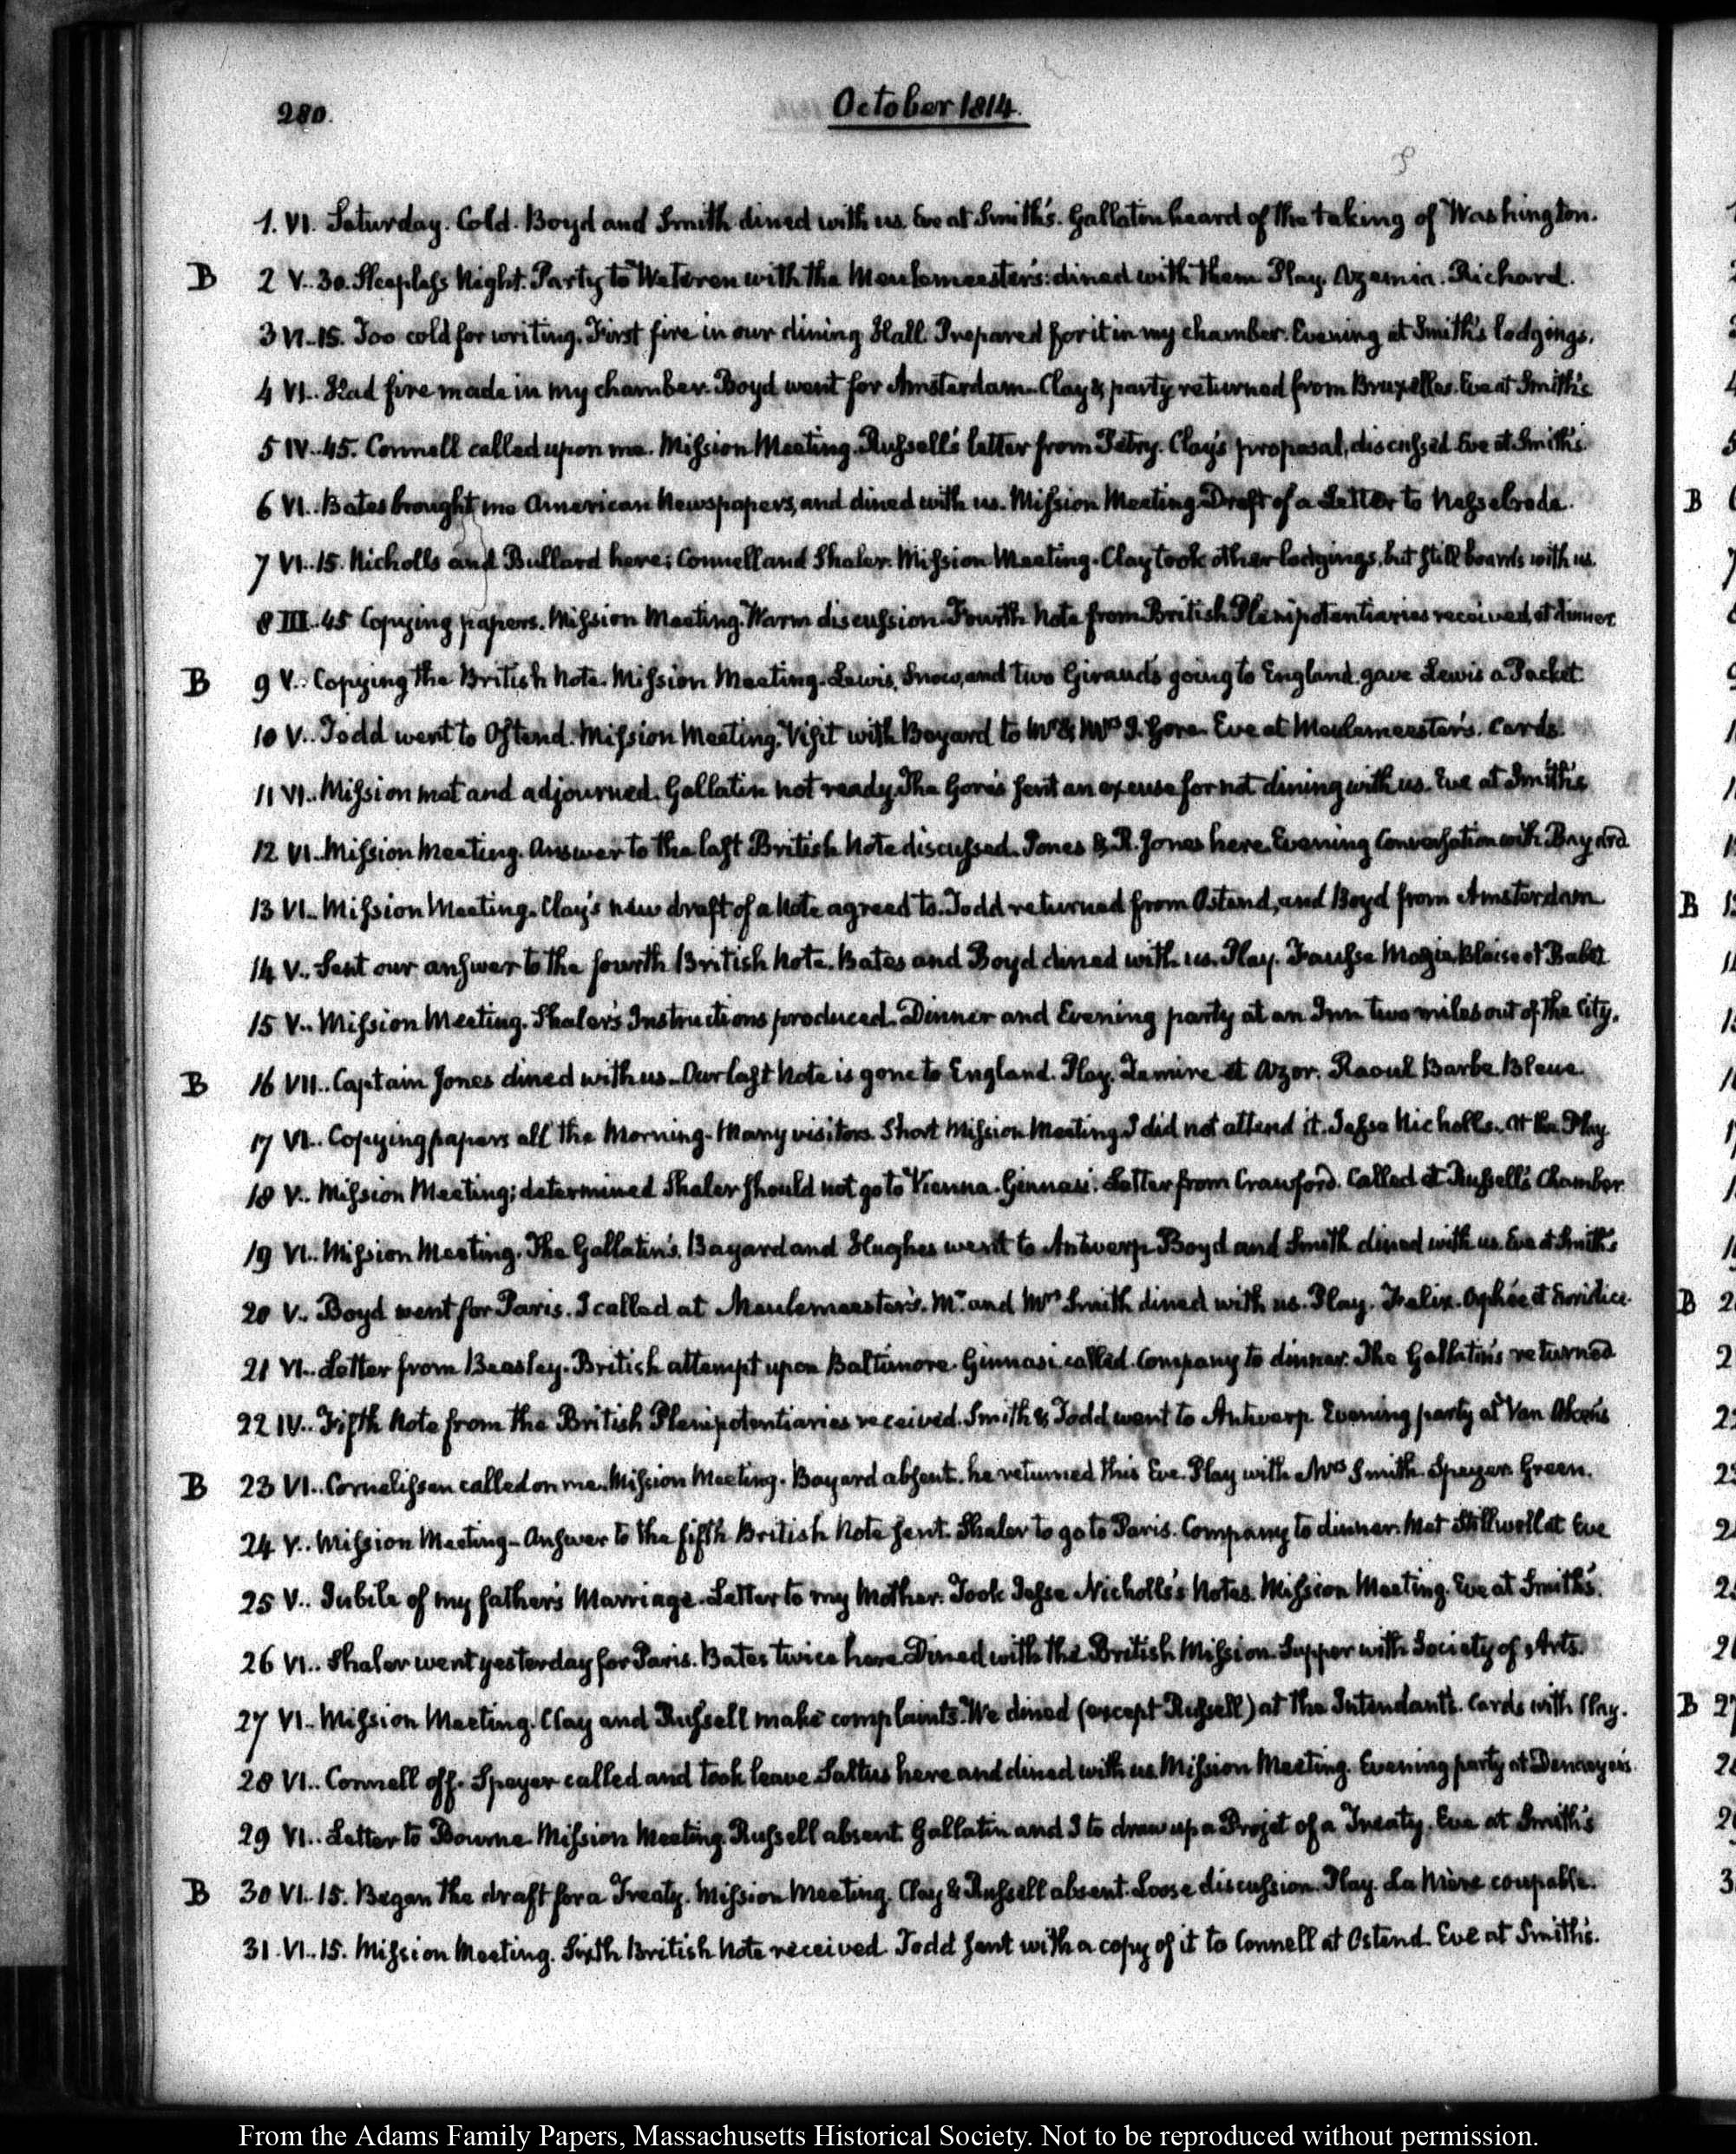 280.
October 1814.
1. VI. Saturday. Cold. Boyd and Smith dined with us. Eve at Smith's. Gallatin heard of the taking of Washington.
B 2 V..30. Sleepless Night. Party to Wateren with the Meulemeester's: dined with them. Play. Azemia. Richard.
3 VI..15. Too cold for writing. First fire in our dining Hall. Prepared for it in my chamber. Evening at Smith's lodgings.
4 VI.. Had fire made in my chamber. Boyd went for Amsterdam. Clay & party returned from Bruxelles. Eve at Smith's
5 IV..45. Connell called upon me. Mission Meeting. Russell's letter from Petry. Clay's proposal, discussed. Eve at Smith's.
6 VI.. Bates brought me American Newspapers, and dined with us. Mission Meeting. Draft of a Letter to Nesselrode.
7 VI..15. Nicholls and Bullard here; Connell and Shaler. Mission Meeting. Clay took other lodgings, but still boards with us.
8 III..45 Copying papers. Mission Meeting. Warm discussion. Fourth Note from British Plenipotentiaries received, at dinner
B 9 V.. Copying the British Note. Mission Meeting. Lewis, Snow, and two Girauds going to England. gave Lewis a Packet.
10 V.. Todd went to Ostend. Mission Meeting. Visit with Bayard to Mr. & Mrs. J. Gore. Eve at Meulemeester's. Cards.
11 VI.. Mission met and adjourned. Gallatin not ready. The Gore's sent an excuse for not dining with us. Eve at Smith's
12 VI.. Mission Meeting. Answer to the last British Note discussed. Jones & R. Jones here. Evening Conversation with Bayard
13 VI.. Mission Meeting. Clay's new draft of a Note agreed to. Todd returned from Ostend, and Boyd from Amsterdam.
14 V.. Sent our answer to the fourth British Note. Bates and Boyd dined with us. Play. Fausse Magie. Blaise et Babet
15 V.. Mission Meeting. Shaler's Instructions produced. Dinner and Evening party at an Inn two miles out of the City.
B 16 VII.. Captain Jones dined with us. Our last Note is gone to England. Play. Zemire et Azor. Raoul Barbe Bleue.
17 VI.. Copying papers all the Morning. Many visitors. Short Mission Meeting. I did not attend it. Jesse Nicholls. At the Play
18 V.. Mission Meeting; determined Shaler should not go to Vienna. Ginnasi. Letter from Crawford. Called at Russell's Chamber
19 VI.. Mission Meeting. The Gallatin's, Bayard and Hughes went to Antwerp. Boyd and Smith dined with us. Eve at Smith's
20 V.. Boyd went for Paris. I called at Meulemeester's. Mr. and Mrs. Smith dined with us. Play. Felix. Orphée et Euridice.
21 VI.. Letter from Beasley. British attempt upon Baltimore. Ginnasi called. Company to dinner. The Gallatin's returned
22 IV.. Fifth Note from the British Plenipotentiaries received. Smith & Todd went to Antwerp. Evening party at Van
B 23 VI.. Cornelissen called on me. Mission Meeting. Bayard absent. he returned this Eve. Play with Mrs Smith. Speyer. Green.
24 V.. Mission Meeting. Answer to the fifth British Note sent. Shaler to go to Paris. Company to dinner. Met Stillwell at Eve
25 V.. Jubile of my father's Marriage. Letter to my Mother. Took Jesse Nicholls's Notes. Mission Meeting. Eve at Smith's.
26 VI.. Shaler went yesterday for Paris. Bates twice here. Dined with the British Mission. Supper with Society of Arts.
27 VI.. Mission Meeting. Clay and Russell make complaints. We dined (except Russell) at the Intendant's. Cards with Clay.
28 VI.. Connell off. Speyer called and took leave. Saltus here and dined with us. Mission Meeting. Evening party at
29 VI.. Letter to Bourne. Mission Meeting. Russell absent. Gallatin and I to draw up a Projet of a Treaty. Eve at Smith's
B 30 VI..15. Began the draft for a Treaty. Mission Meeting. Clay & Russell absent. Loose discussion. Play. La Mère coupable.
31. VI..15. Mission Meeting. Sixth British Note received. Todd sent with a copy of it to Connell at Ostend. Eve at Smith's.
From the Adams Family Papers, Massachusetts Historical Society. Not to be reproduced without permission.